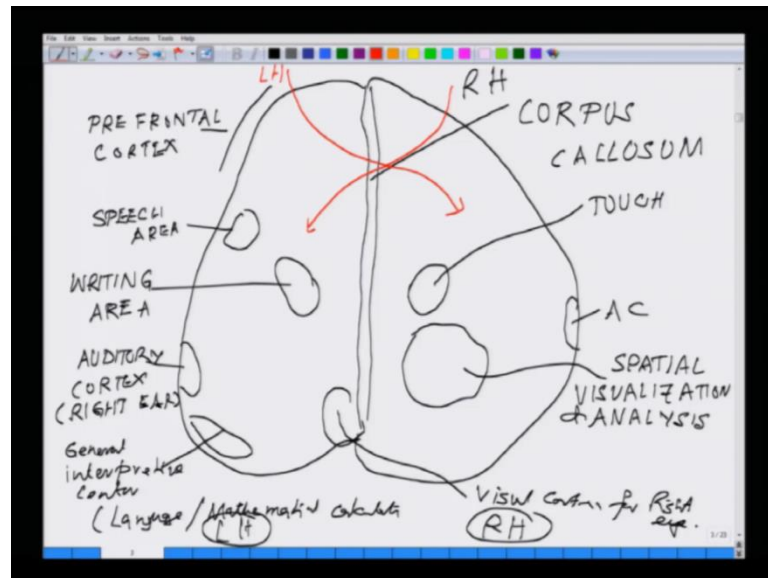 File Edit View Insert Actions Tools Help
LH
RH
PRE FRONTAL
CORTEX
CORPUS
CALLOSUM
SPEECH
AREA
TOUCH
WRITING
AREA
AC
AUDITORY
CORTEX
(RIGHT EAR)
SPATIAL
VISUALIZATION
& ANALYSIS
General
interpretive
center
(Language / Mathematical
Visual for Right
eye.
LH
RH
3/25
3